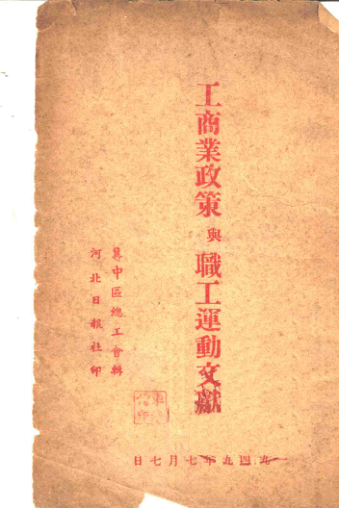 工商業政策與職工運動文獻
冀中區總工會輯
河北日報社印
一九四九年七月七日